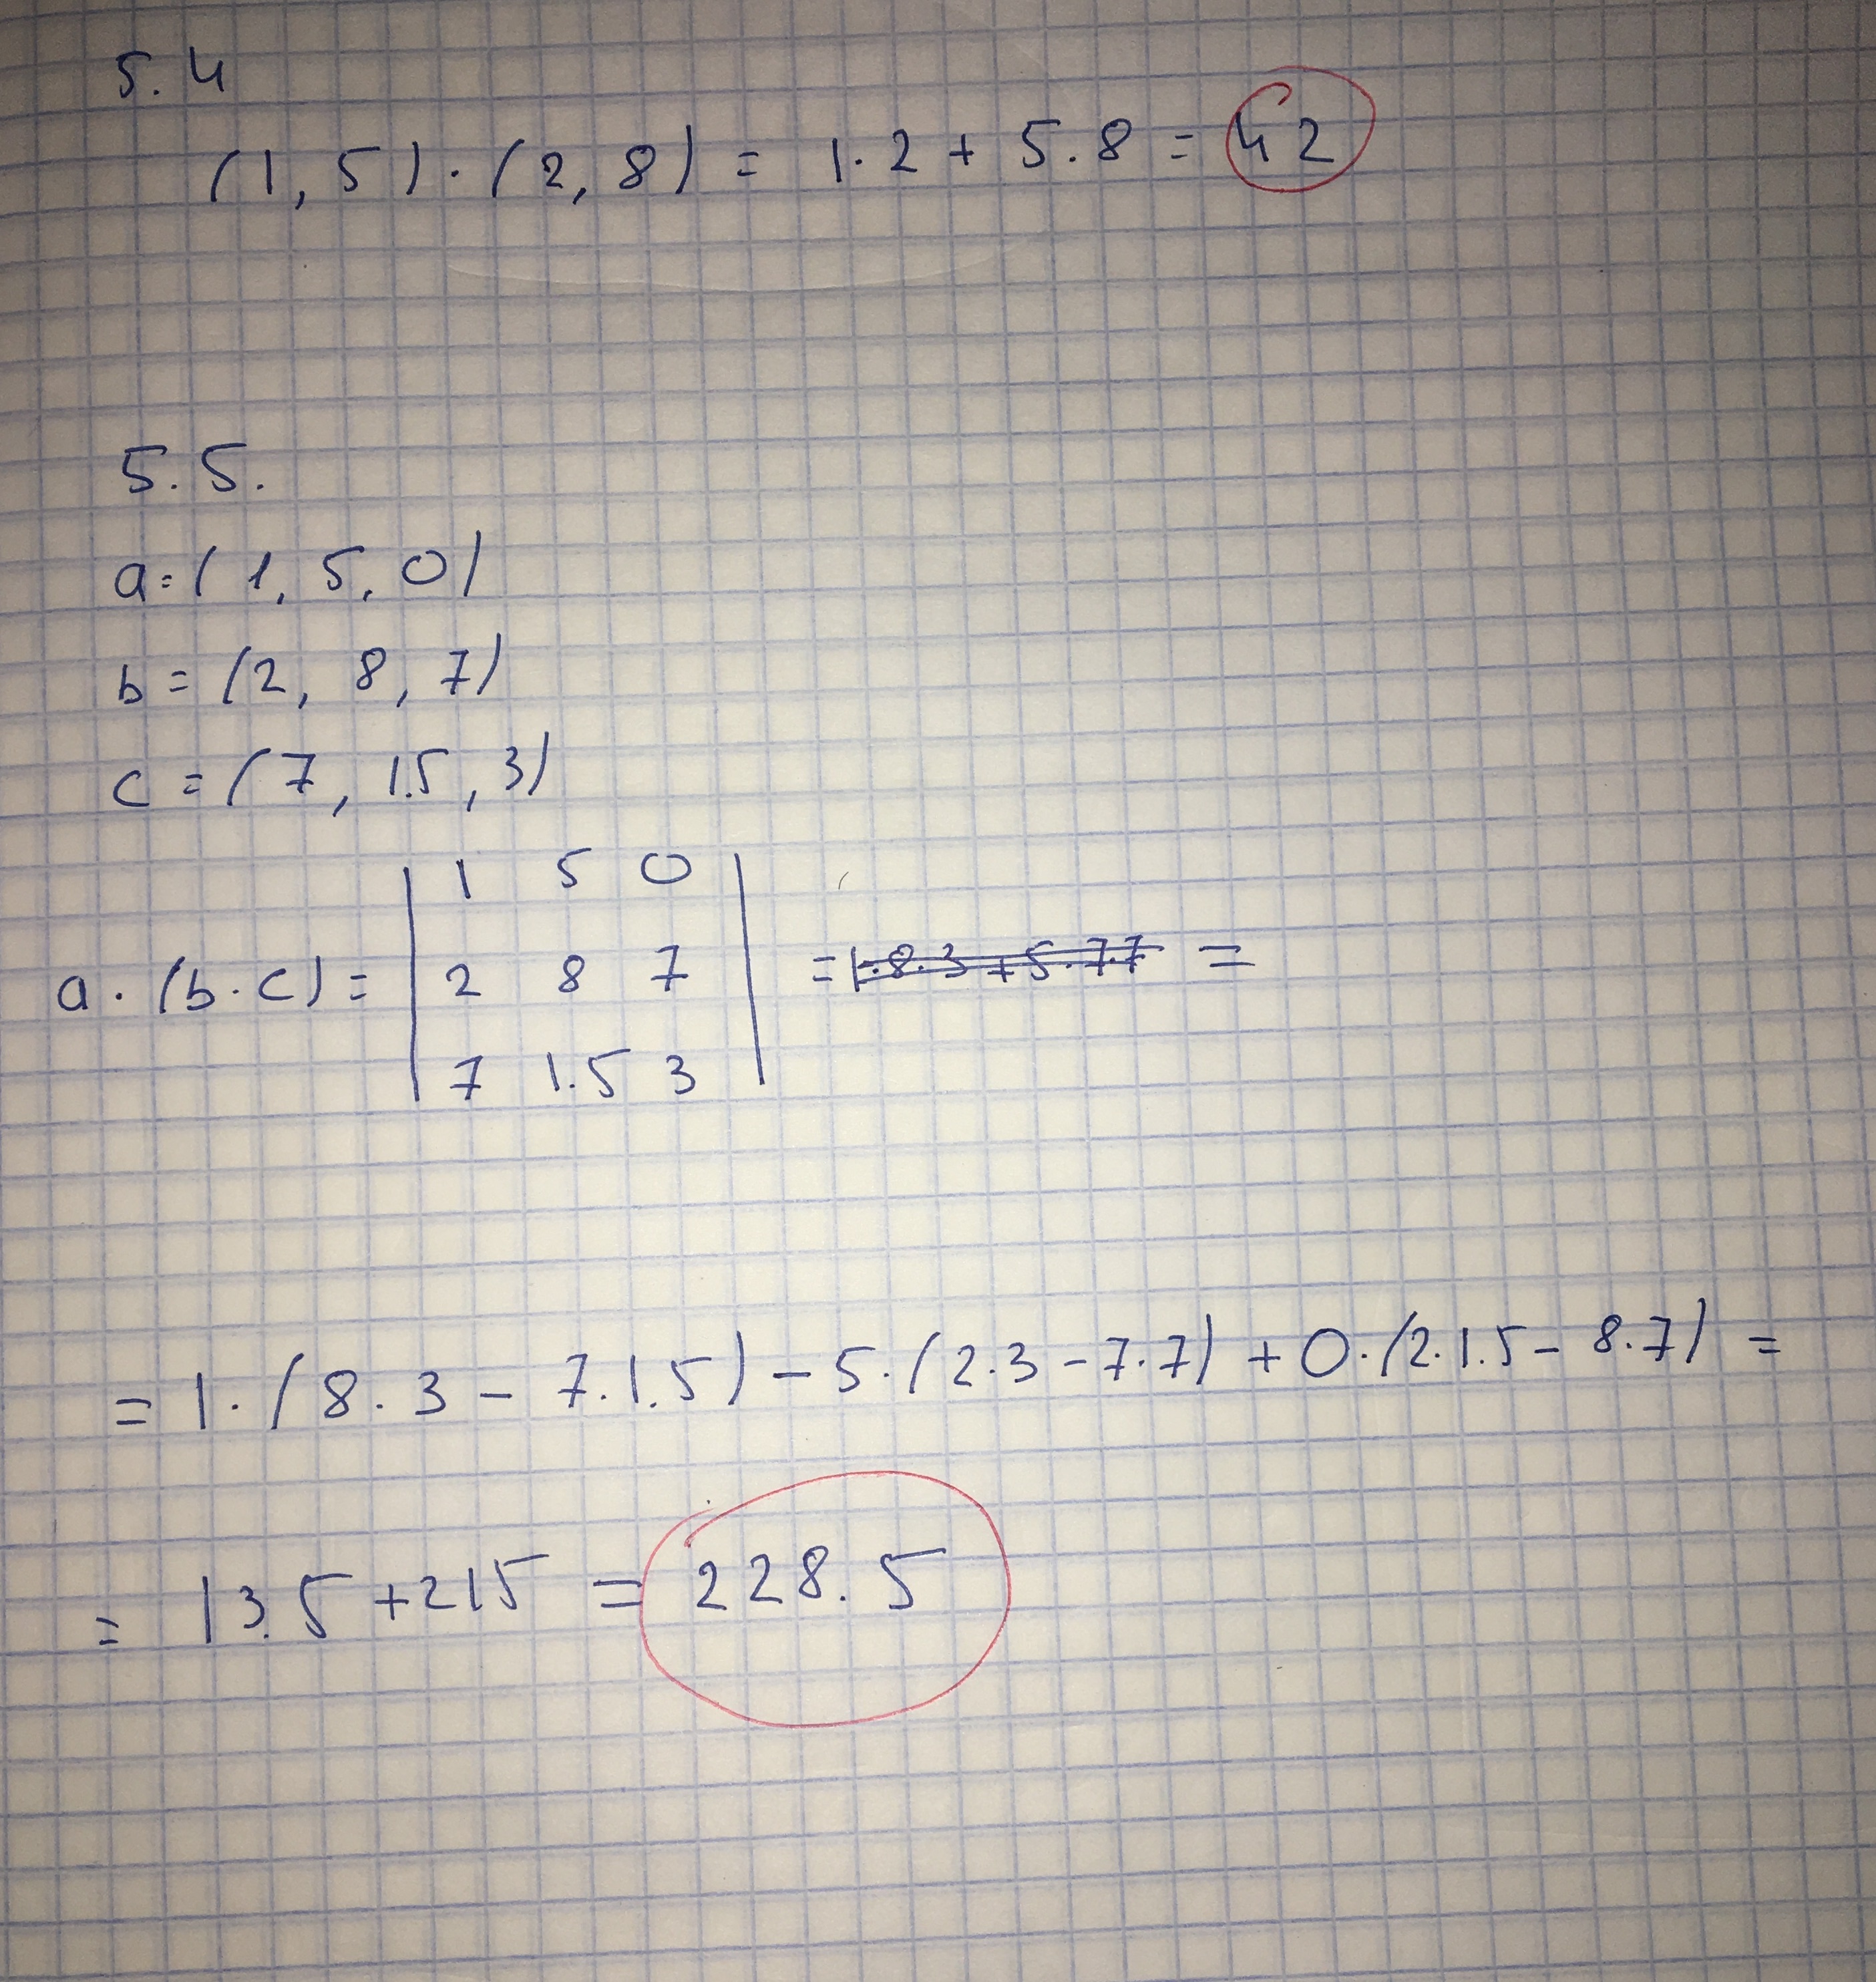 5.4
(1, 5) · (2, 8) = 1·2 + 5.8 = 42
5.5.
a=(1, 5, 0)
b = (2, 8, 7)
c = (7, 1.5, 3)
1 5 0
a · (b·c) = | 2 8 7 | = 1.8.3 + 5.7.7 =
7 1.5 3
= 1 · (8.3 - 7.1.5) - 5.(2.3 - 7.7) + 0.(2.1.5 - 8.7) =
= 13.5 + 215 = 228.5